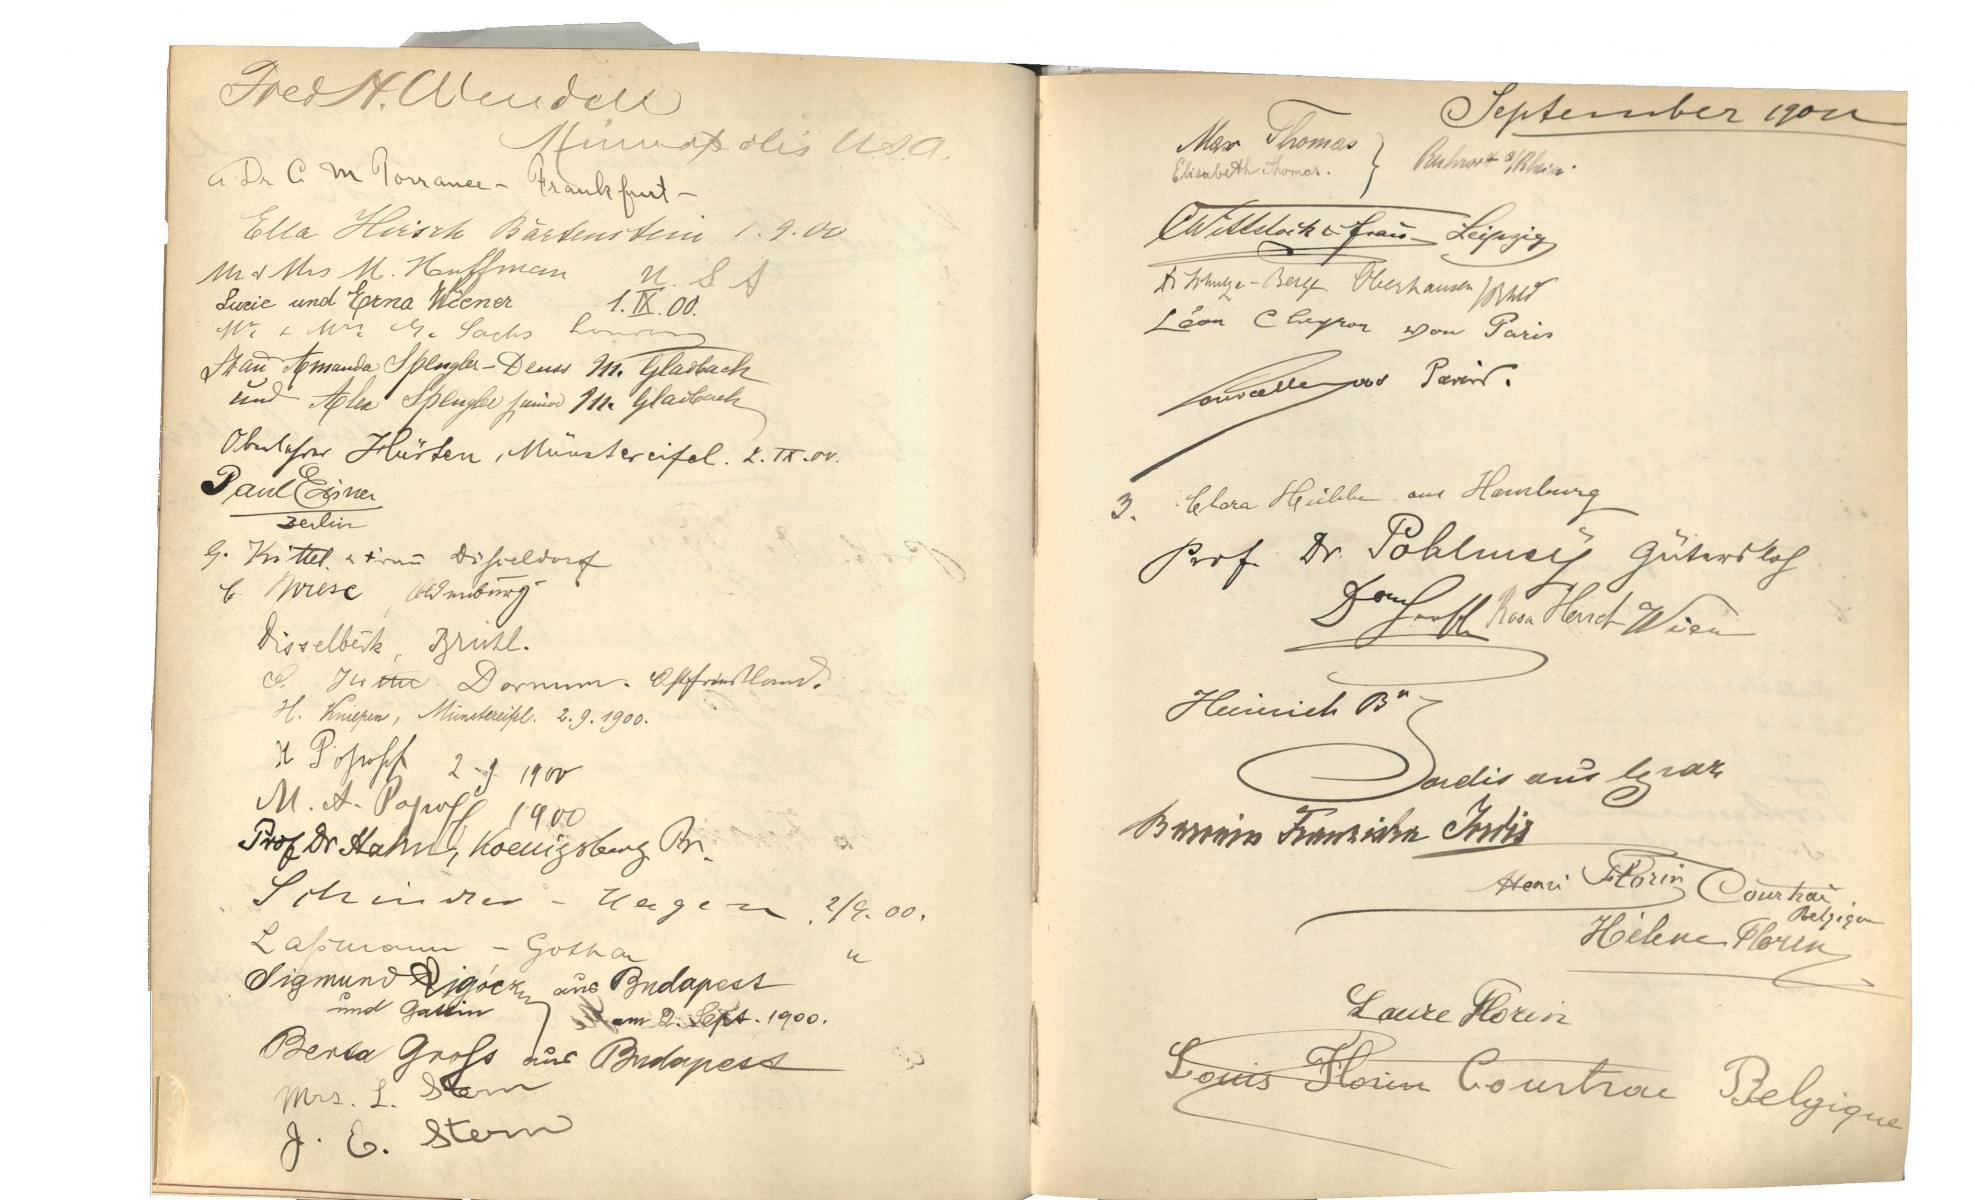 Fred H. Wendell
Minneapolis U.S.A.
Dr C M Torrance - Frankfurt -
Ella Hirsch Bartenstein 1.9.00
Mr & Mrs M. Hauffman U.S A
Luzie und Erna Wiener 1.IX.00.
Mr. & Mrs. G. Sachs London
Frau Amanda Spengler-Deuss M. Gladbach
und Alex Spengler junior M. Gladbach
Oberlehrer Hürten, Münstereifel. 2.IX.00.
Paul Eisner
Berlin
G. Kittel & Frau Düsseldorf
C. Wrese, Oldenburg
Disselbeck, Brühl.
Dornum. Ostfriesland.
H. Kniepen, Münstereifel. 2.9.1900.
Popoff 2-9 1900
M. A. Popoff 1900
Prof Dr Hahn, Koenigsberg Pr.
Schindler - Hagen 2/9.00.
Laßmann - Gotha "
Sigmund aus Budapest
und Gattin am 2. Sept. 1900.
Berta Groß aus Budapest
Mrs. L. Stern
J. E. Stern
September 1900
Max Thomas
Elisabeth Thomas. } Ruhrort a/Rhein.
C Wittstock & Frau Leipzig
Dr Schulze-Berge Oberhausen /Rhld
Léon Cheyron von Paris
Paris.
3. Clara aus Hamburg
Prof. Dr. Pohlmey Gütersloh
Rosa Hersch Wien
Heinrich Bn
Jordis aus Graz
Baronin Franziska Jordis
Henri Florin Courtrai
Belgique
Hélène Florin
Laure Florin
Louis Florin Courtrai Belgique